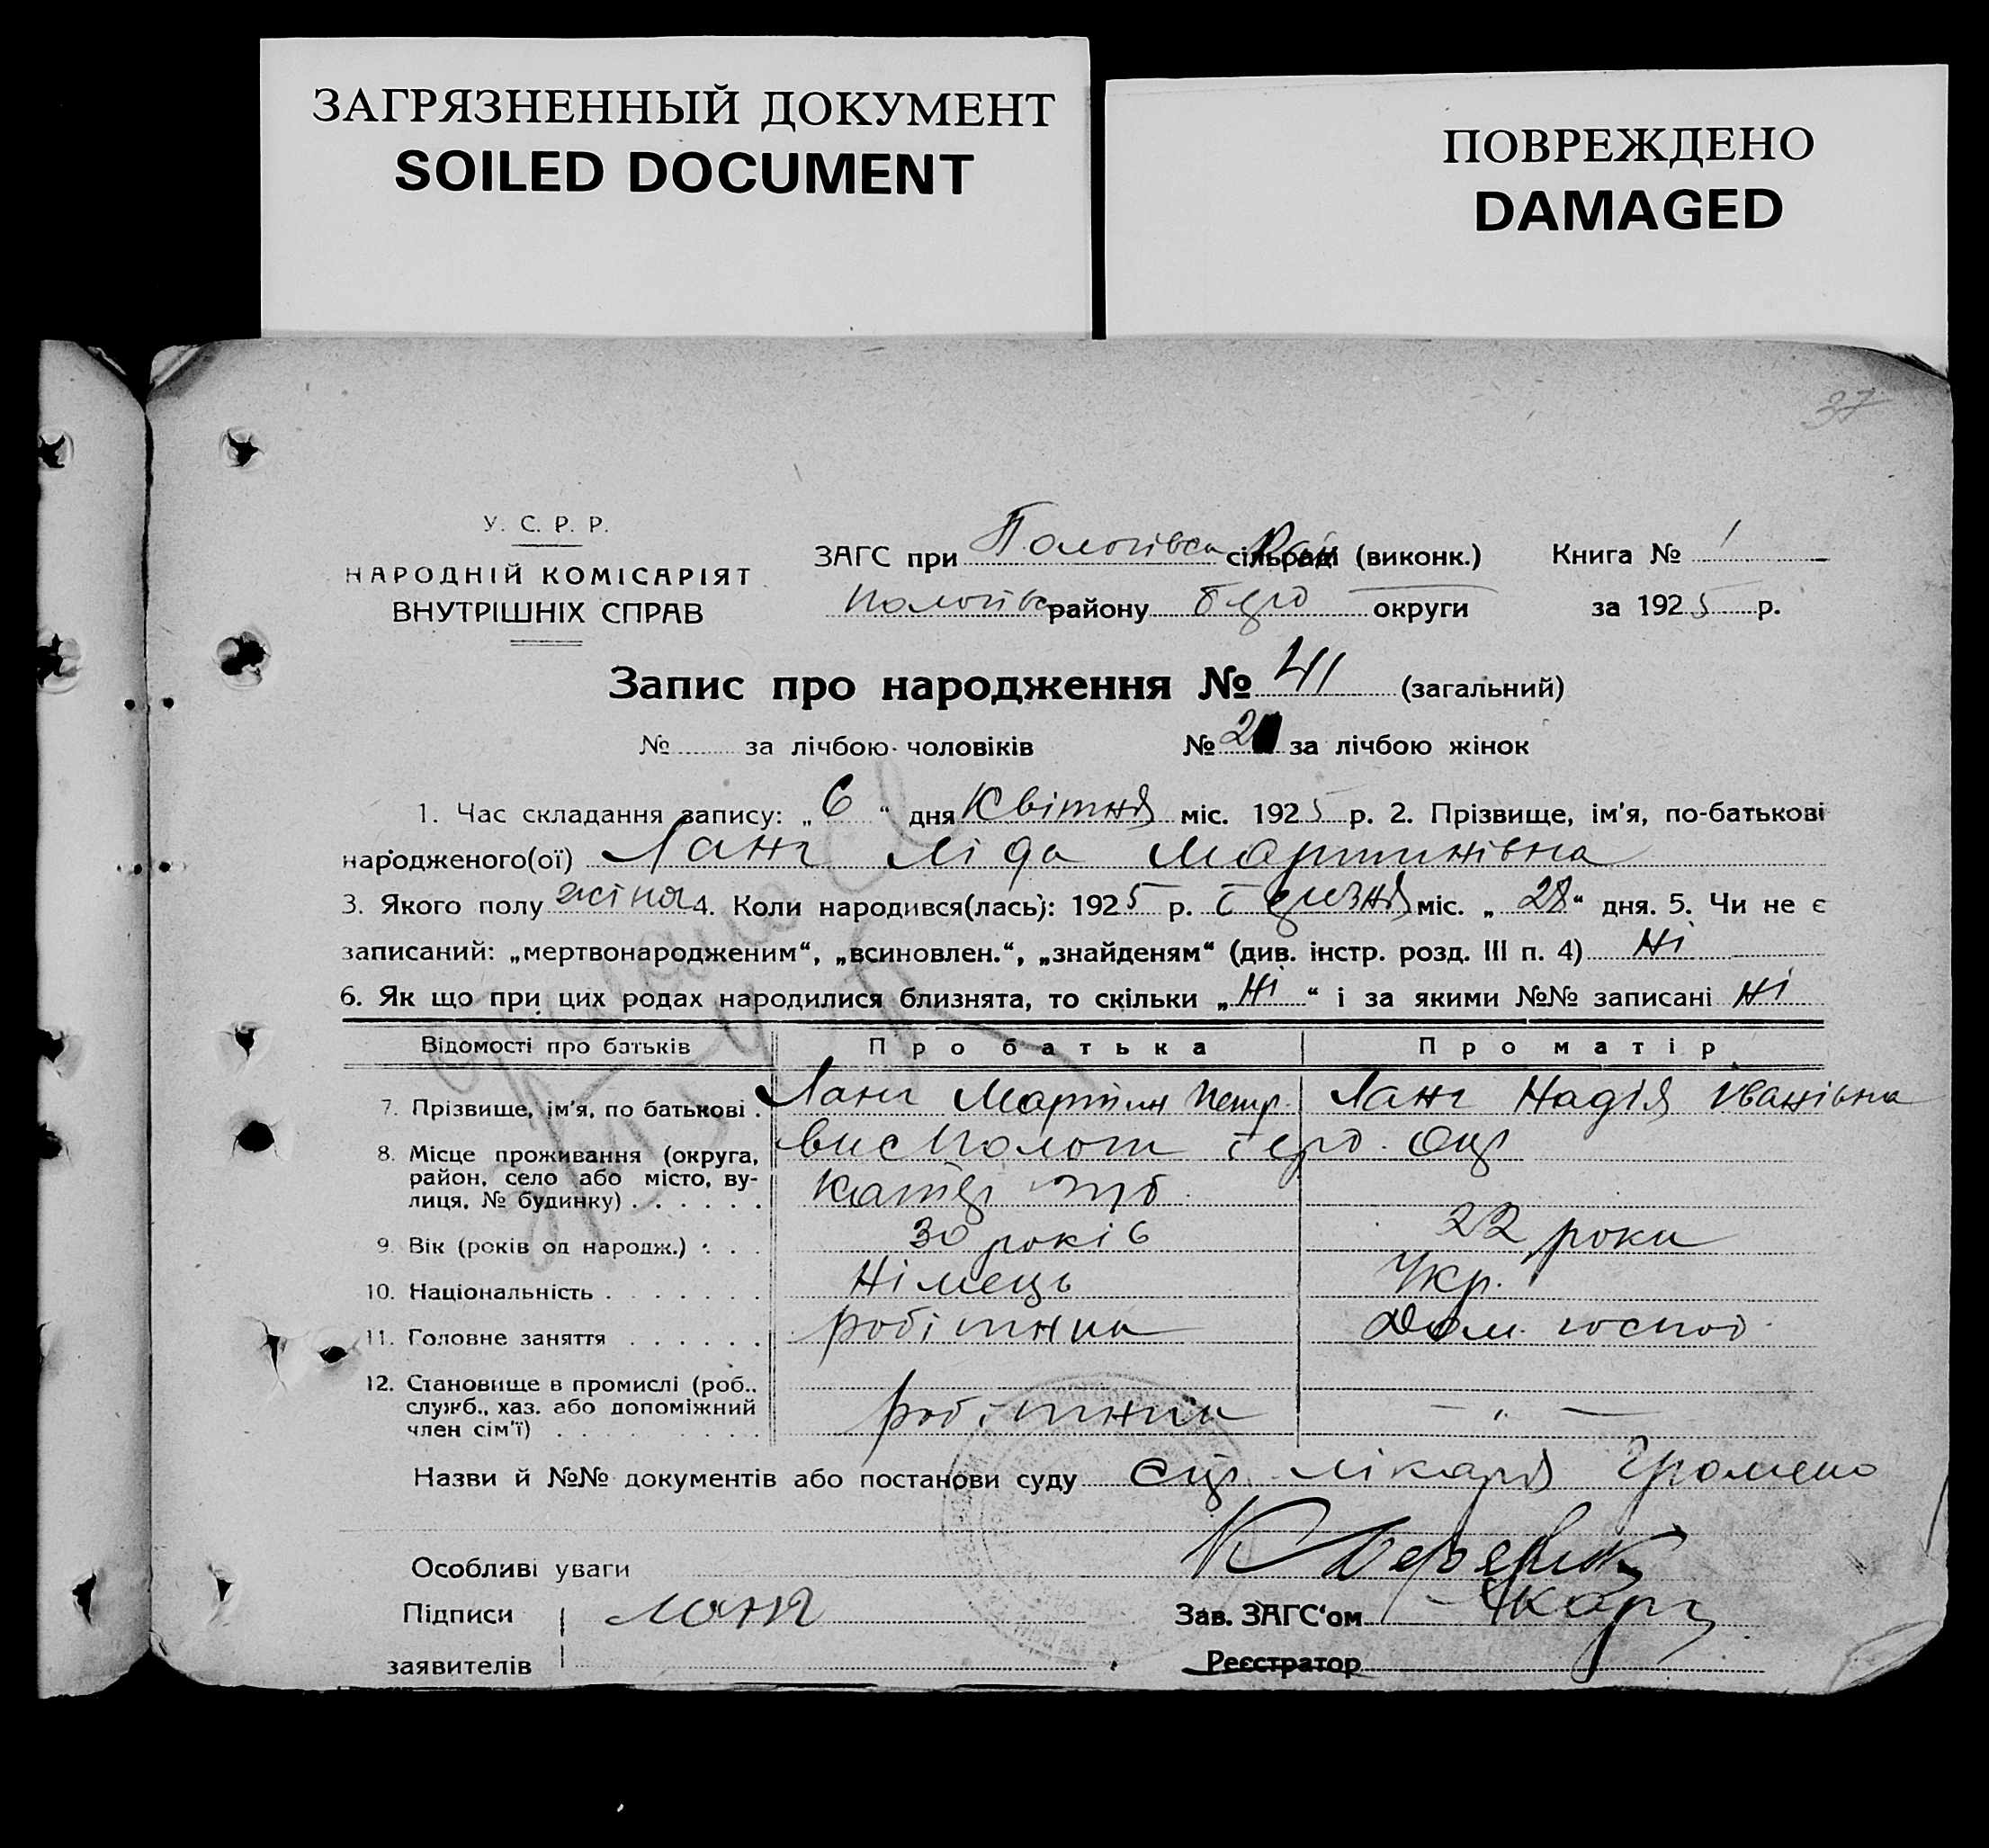 ЗАГРЯЗНЕННЫЙ ДОКУМЕНТ
SOILED DOCUMENT
ПОВРЕЖДЕНО
DAMAGED
37
У. С. Р. Р.
НАРОДНІЙ КОМІСАРІЯТ
ВНУТРІШНІХ СПРАВ
ЗАГС при Пологівськ сільраді (виконк.) Книга № 1
району округи за 1925 р.
Запис про народження № 41 (загальний)
№ за лічбою чоловіків № 2 за лічбою жінок
1. Час складання запису: „6“ дня Квітня міс. 1925 р. 2. Прізвище, ім'я, по-батькові
народженого(ої) Ланг Ліда Мартинівна
3. Якого полу жіноч 4. Коли народився(лась): 1925 р. Березня міс. „28“ дня. 5. Чи не є
записаний: „мертвонародженим“, „всиновлен.“, „знайденям“ (див. інстр. розд. III п. 4) Ні
6. Як що при цих родах народилися близнята, то скільки „Ні“ і за якими №№ записані Ні
Відомості про батьків Про батька Про матір
7. Прізвище, ім'я, по батькові . Ланг Мартин Петр. Ланг Надія Иванівна
8. Місце проживання (округа,
район, село або місто, ву-
лиця, № будинку) . . . . . .
9. Вік (років од народж.) . . . 30 років 22 роки
10. Національність . . . . . . . Німець Укр.
11. Головне заняття . . . . . . робітник Дом. господ.
12. Становище в промислі (роб.,
служб., хаз. або допоміжний
член сім'ї) . . . . . . . . . робітник — „ —
Назви й №№ документів або постанови суду лікаря
Особливі уваги
Підписи Ланг Зав. ЗАГС‘ом
заявителів Реєстратор